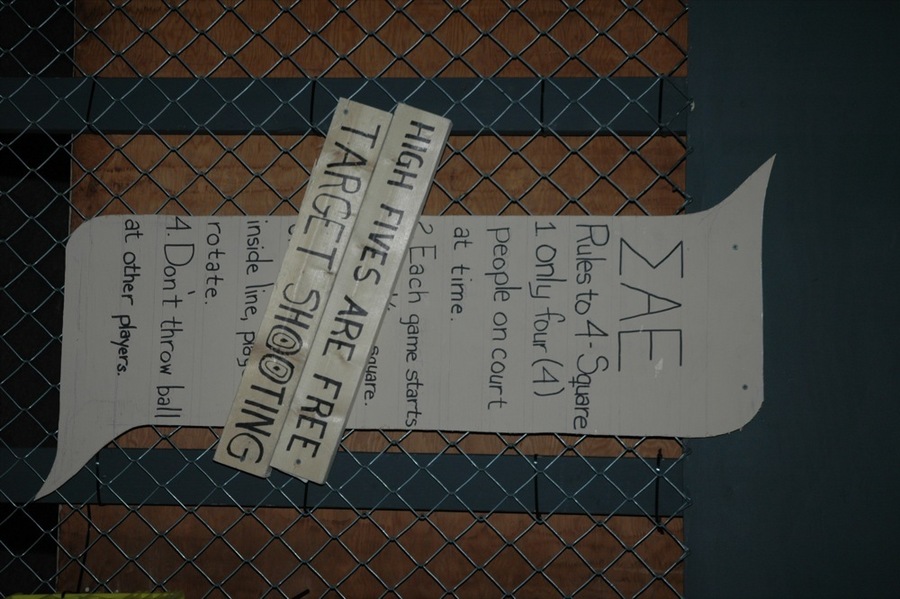 ΣAE
Rules to 4-Square
1 only four (4)
people on court
at time.
2 Each game starts
square.
inside line, play
rotate.
4. Don't throw ball
at other players.
HIGH FIVES ARE FREE
TARGET SHOOTING